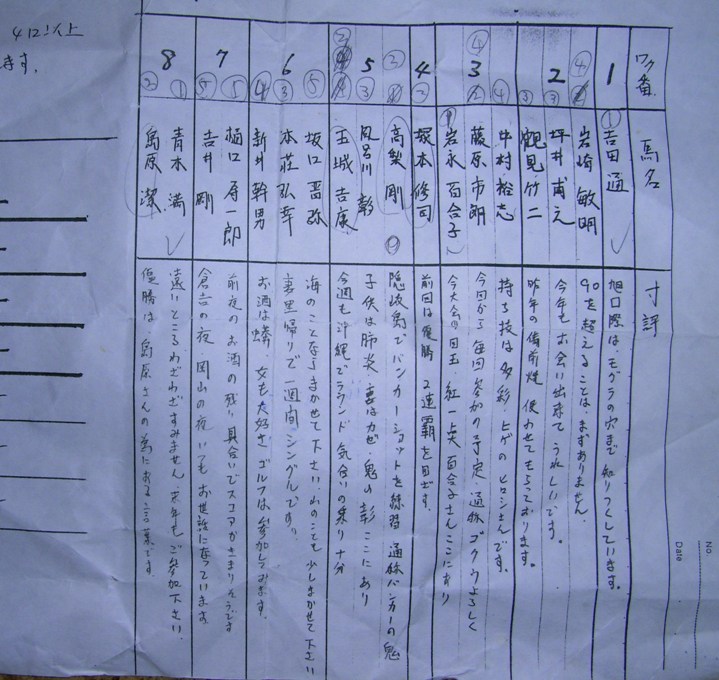 ワク番 馬名 寸評
1 ① 吉田 通 旭日際は、モグラの穴まで知りつくしています。
④ 岩崎 敏明 90を超えることは、まずありません。
2 ③ 坪井 甫之 今年もお会い出来て うれしいです。
③ 鶴見 竹二 昨年の備前焼 使わせてもらっております。
④ 中村 裕志 持ち技は多彩・ヒゲのヒロシさんです。
3 ④ 藤原 市朗 今回から毎回参加の予定 通称ゴクウよろしく
① 岩永 百合子 今大会の目玉・紅一点 百合子さんここにあり
4 ② 塚本 修司 前回は優勝 2連覇を目ざす。
高梨 剛 隠岐島でバンカーショットを練習 通称バンカーの鬼
5 ③ 彰 子供は肺炎 妻はカゼ・鬼の彰ここにあり
玉城 吉康 今週も沖縄でラウンド 気合いの乗り十分
⑤ 坂口 晋弥 海のことならまかせて下さい、山のことも少しまかせて下さい
6 ③ 本荘 弘幸 里帰りで一週間 シングルです。
④ 新井 幹男 お酒は 女も大好き ゴルフは参加しております。
7 ⑤ 樋口 寿一郎 前夜のお酒の残り具合いでスコアがきまりそうです
⑤ 吉井 剛 倉吉の夜・岡山の夜 いつもお世話になっています。
8 ① 青木 満 遠いところわざわざすみません 来年もご参加下さい。
② 島原 潔 優勝は 島原さんの為にある言葉です。
No.
Date